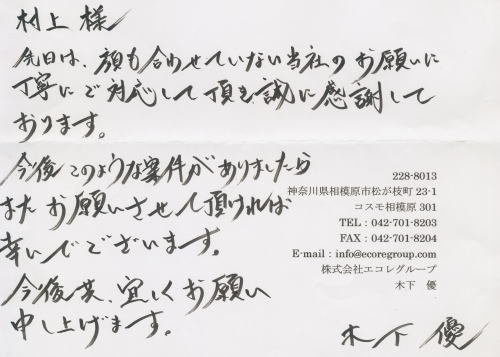 村上 様
先日は、顔も合わせていない当社のお願いに
丁寧にご対応して頂き、誠に感謝して
おります。
今後このような案件がありましたら
またお願いさせて頂ければ
幸いでございます。
今後共、宜しくお願い
申し上げます。
228-8013
神奈川県相模原市松が枝町 23-1
コスモ相模原 301
TEL : 042-701-8203
FAX : 042-701-8204
E-mail : info@ecoregroup.com
株式会社エコレグループ
木下 優
木下 優